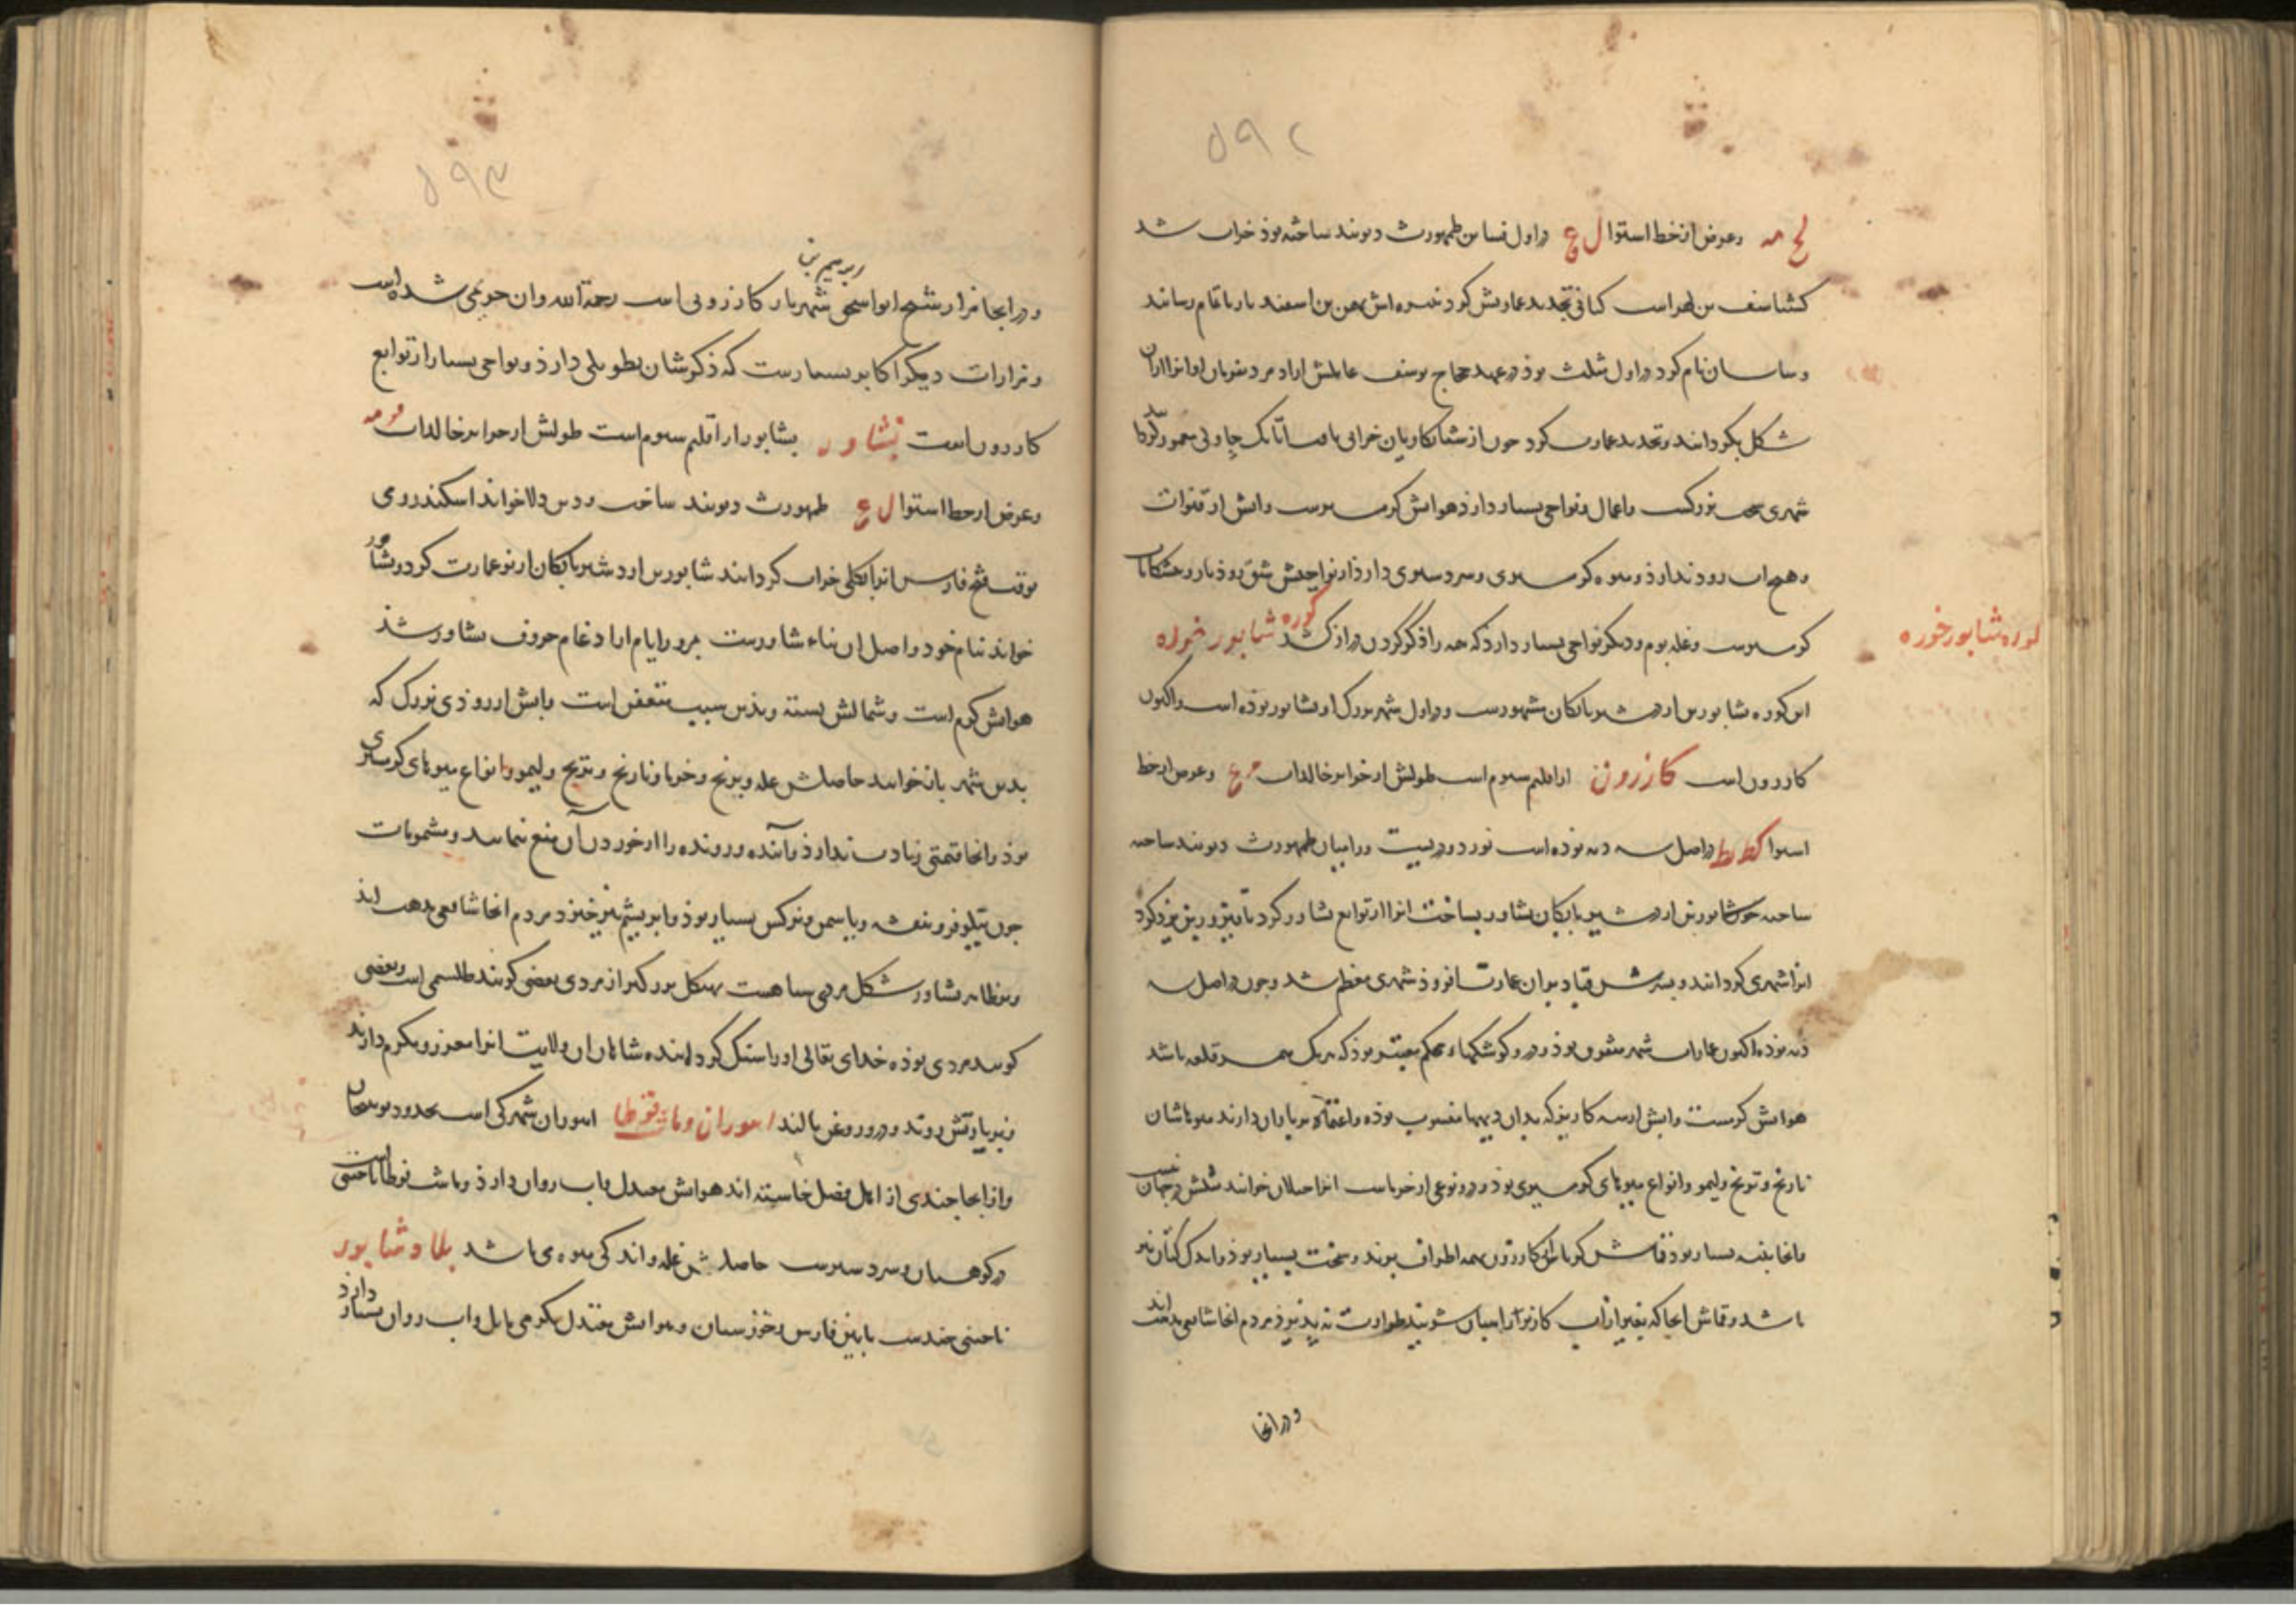 ۵۹۲
لح مه وعرض از خط استوا ل ع در اول فسا بن طهمورث دیوبند ساخته بوذ خراب شد
کشتاسف بن لهراسب کیانی تجدید عمارتش کرد نبیره اش بهمن بن اسفندیار باتمام رسانید
وساسان نام کرد در اول مثلث بوذ در عهد حجاج یوسف عاملش ازاد مرد
شکل بکردانید وتجدید عمارت کرد چون از شبانکاریان خرابی یافت اتابک چاولی معمور کرد
شهری سخت بزرکست واعمال ونواحی بسیار دارذ هوایش کرمسیرست وابش از قنوات
وهیچ اب رود ندارذ ومیوه کرمسیری وسردسیری دارذ از نواحیش شق روذبار ومیشکانات
کرمسیرست وغله بوم ودیکر نواحی بسیار دارد که همه را ذکر کردن دراز کشد کوره شابور خوره
کوره شابور خوره
این کوره بشابور بن اردشیر بابکان مشهورست ودر اول شهر بزرک او بشابور بوذه است واکنون
کازرون است کازرون از اقلیم سیوم است طولش از جزایر خالدات وعرض از خط
استوا کط در اصل سه دیه بوذه است نورد ودریست وراهبان طهمورث دیوبند ساخته
ساخته چون شابور بن اردشیر بابکان بشاور بساخت انرا از توابع بشاور کرد تا فیروز بن یزدکرد
انرا شهری کردانید وپسرش قباد بران عمارت افزوذ شهری معظم شد وچون در اصل سه
دیه بوذه اکنون عمارات شهر متفرق بوذ ودرو کوشکهاء محکم معتبر بوذ که هر یک همسر قلعه باشد
هوایش کرمست وابش از سه کاریز که بدان دیهها منسوب بوذه واعتماد بر باران دارند میوهاشان
نارنج وترنج ولیمو وانواع میوهای کرمسیری بوذ ودرو نوعی از خرماست انرا جیلان خوانند مثلش در جهان نیست
وانجا پنبه بسیار بوذ قماش کرباس کازرون بهمه اطراف برند وسخت بسیار بوذ واندک کتان نیز
باشد وقماش انجا که بغیر از آب کازر راهبان شویند طراوت نه پذیرد مردم انجا شافعی مذهب اند
ودر انجا
۵۹۳
ودر انجا مزار شیخ ابواسحق ابرهیم بن شهریار کازرونی است رحمة الله وان حریمی شده است
ومزارات دیکر اکابر بسیارست که ذکرشان بطویلی دارذ ونواحی بسیار از توابع
کازرون است بشاور بشابور از اقلیم سیوم است طولش از جزایر خالدات فو مه
وعرض از خط استوا ل ع طهمورث دیوبند ساخت ودین دلا خواند اسکندر رومی
بوقت فتح فارس انرا بکلی خراب کردانید شابور بن اردشیر بابکان از نو عمارت کرد وبشابور
خواند بنام خود واصل ان بناء شابورست بمرور ایام از ادغام حروف بشاور شد
هوایش کرم است وشمالش بسته وبذین سبب متعفن است وابش از روذی بزرک که
بدین شهر باز خوانند حاصلش غله وبرنج وخرما ونارنج وترنج ولیمو وانواع میوهای کرمسیری
بوذ وانجا قیمتی زیادت ندارذ وآینده ورونده را از خوردن آن منع ننمایند ومشمومات
چون نیلوفر وبنفشه ویاسمن ونرکس بسیار بوذ وابریشم نیز خیزد مردم انجا شافعی مذهب اند
وبظاهر بشاور شکل مردی سیاهست بهیکل بزرکتر از مردی بعضی کویند طلسمی است وبعضی
کویند مردی بوذه خدای تعالی اورا سنک کردانیده شاهان ان ولایت انرا معزز ومکرم دارند
وبزیارتش روند ودرو روغن مالند انبوران وماشت قوطا انبوران شهرکی است بحدود نوبنجان
واز انجا چندی از اهل فضل خاسته اند هوایش معتدل واب روان دارذ وماشت قوطا ناحیتی است
در کوهستان وسردسیرست حاصلش غله واندکی میوه باشد بلاد شابور
ناحیتی چندست مابین فارس وخوزستان وهوایش معتدل بکرمی مایل واب روان بسیار دارذ